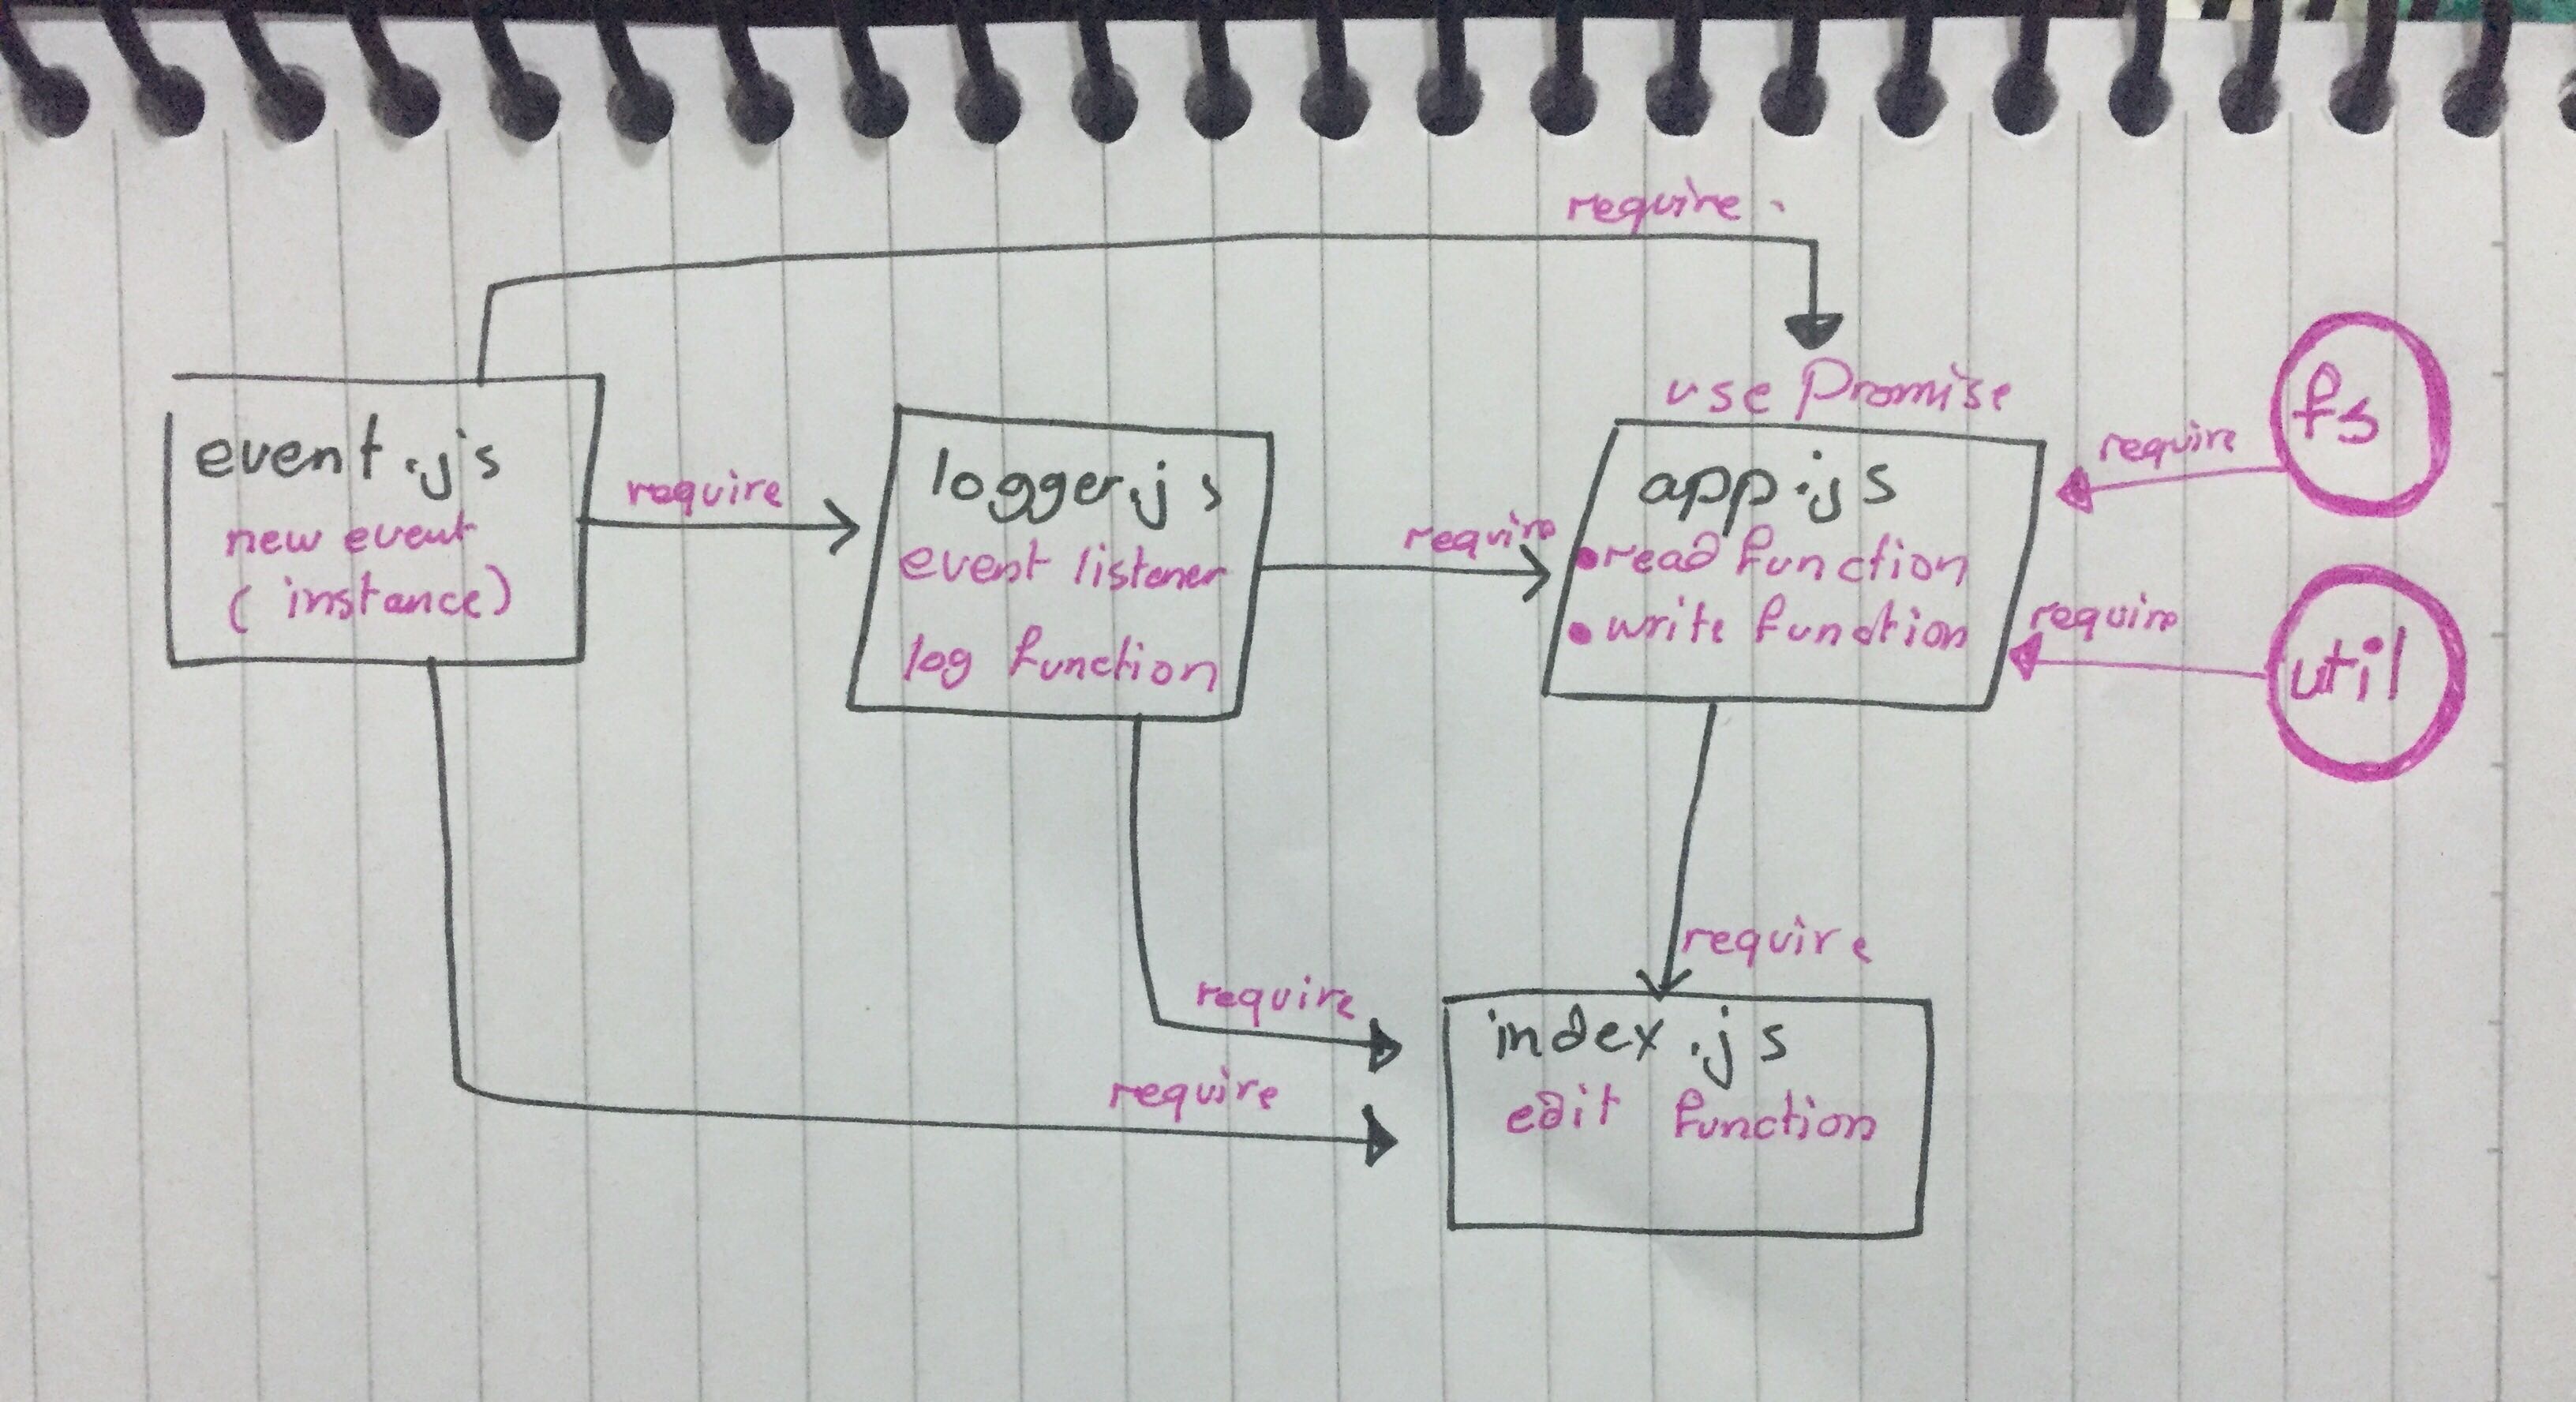 require
use Promise
event.js
new event
(instance)
require
logger.js
event listener
log function
require
app.js
• read function
• write function
require
fs
require
util
require
require
require
index.js
edit function